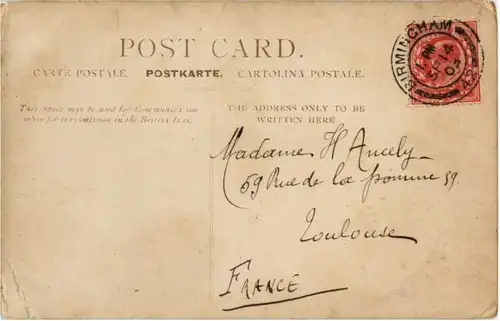 POST CARD.
CARTE POSTALE. POSTKARTE. CARTOLINA POSTALE.
This Space may be used for Communication
when for transmission in the British Isles.
THE ADDRESS ONLY TO BE
WRITTEN HERE
BIRMINGHAM
Madame H Ancely
59 Rue de la pomme 59.
Toulouse
FRANCE